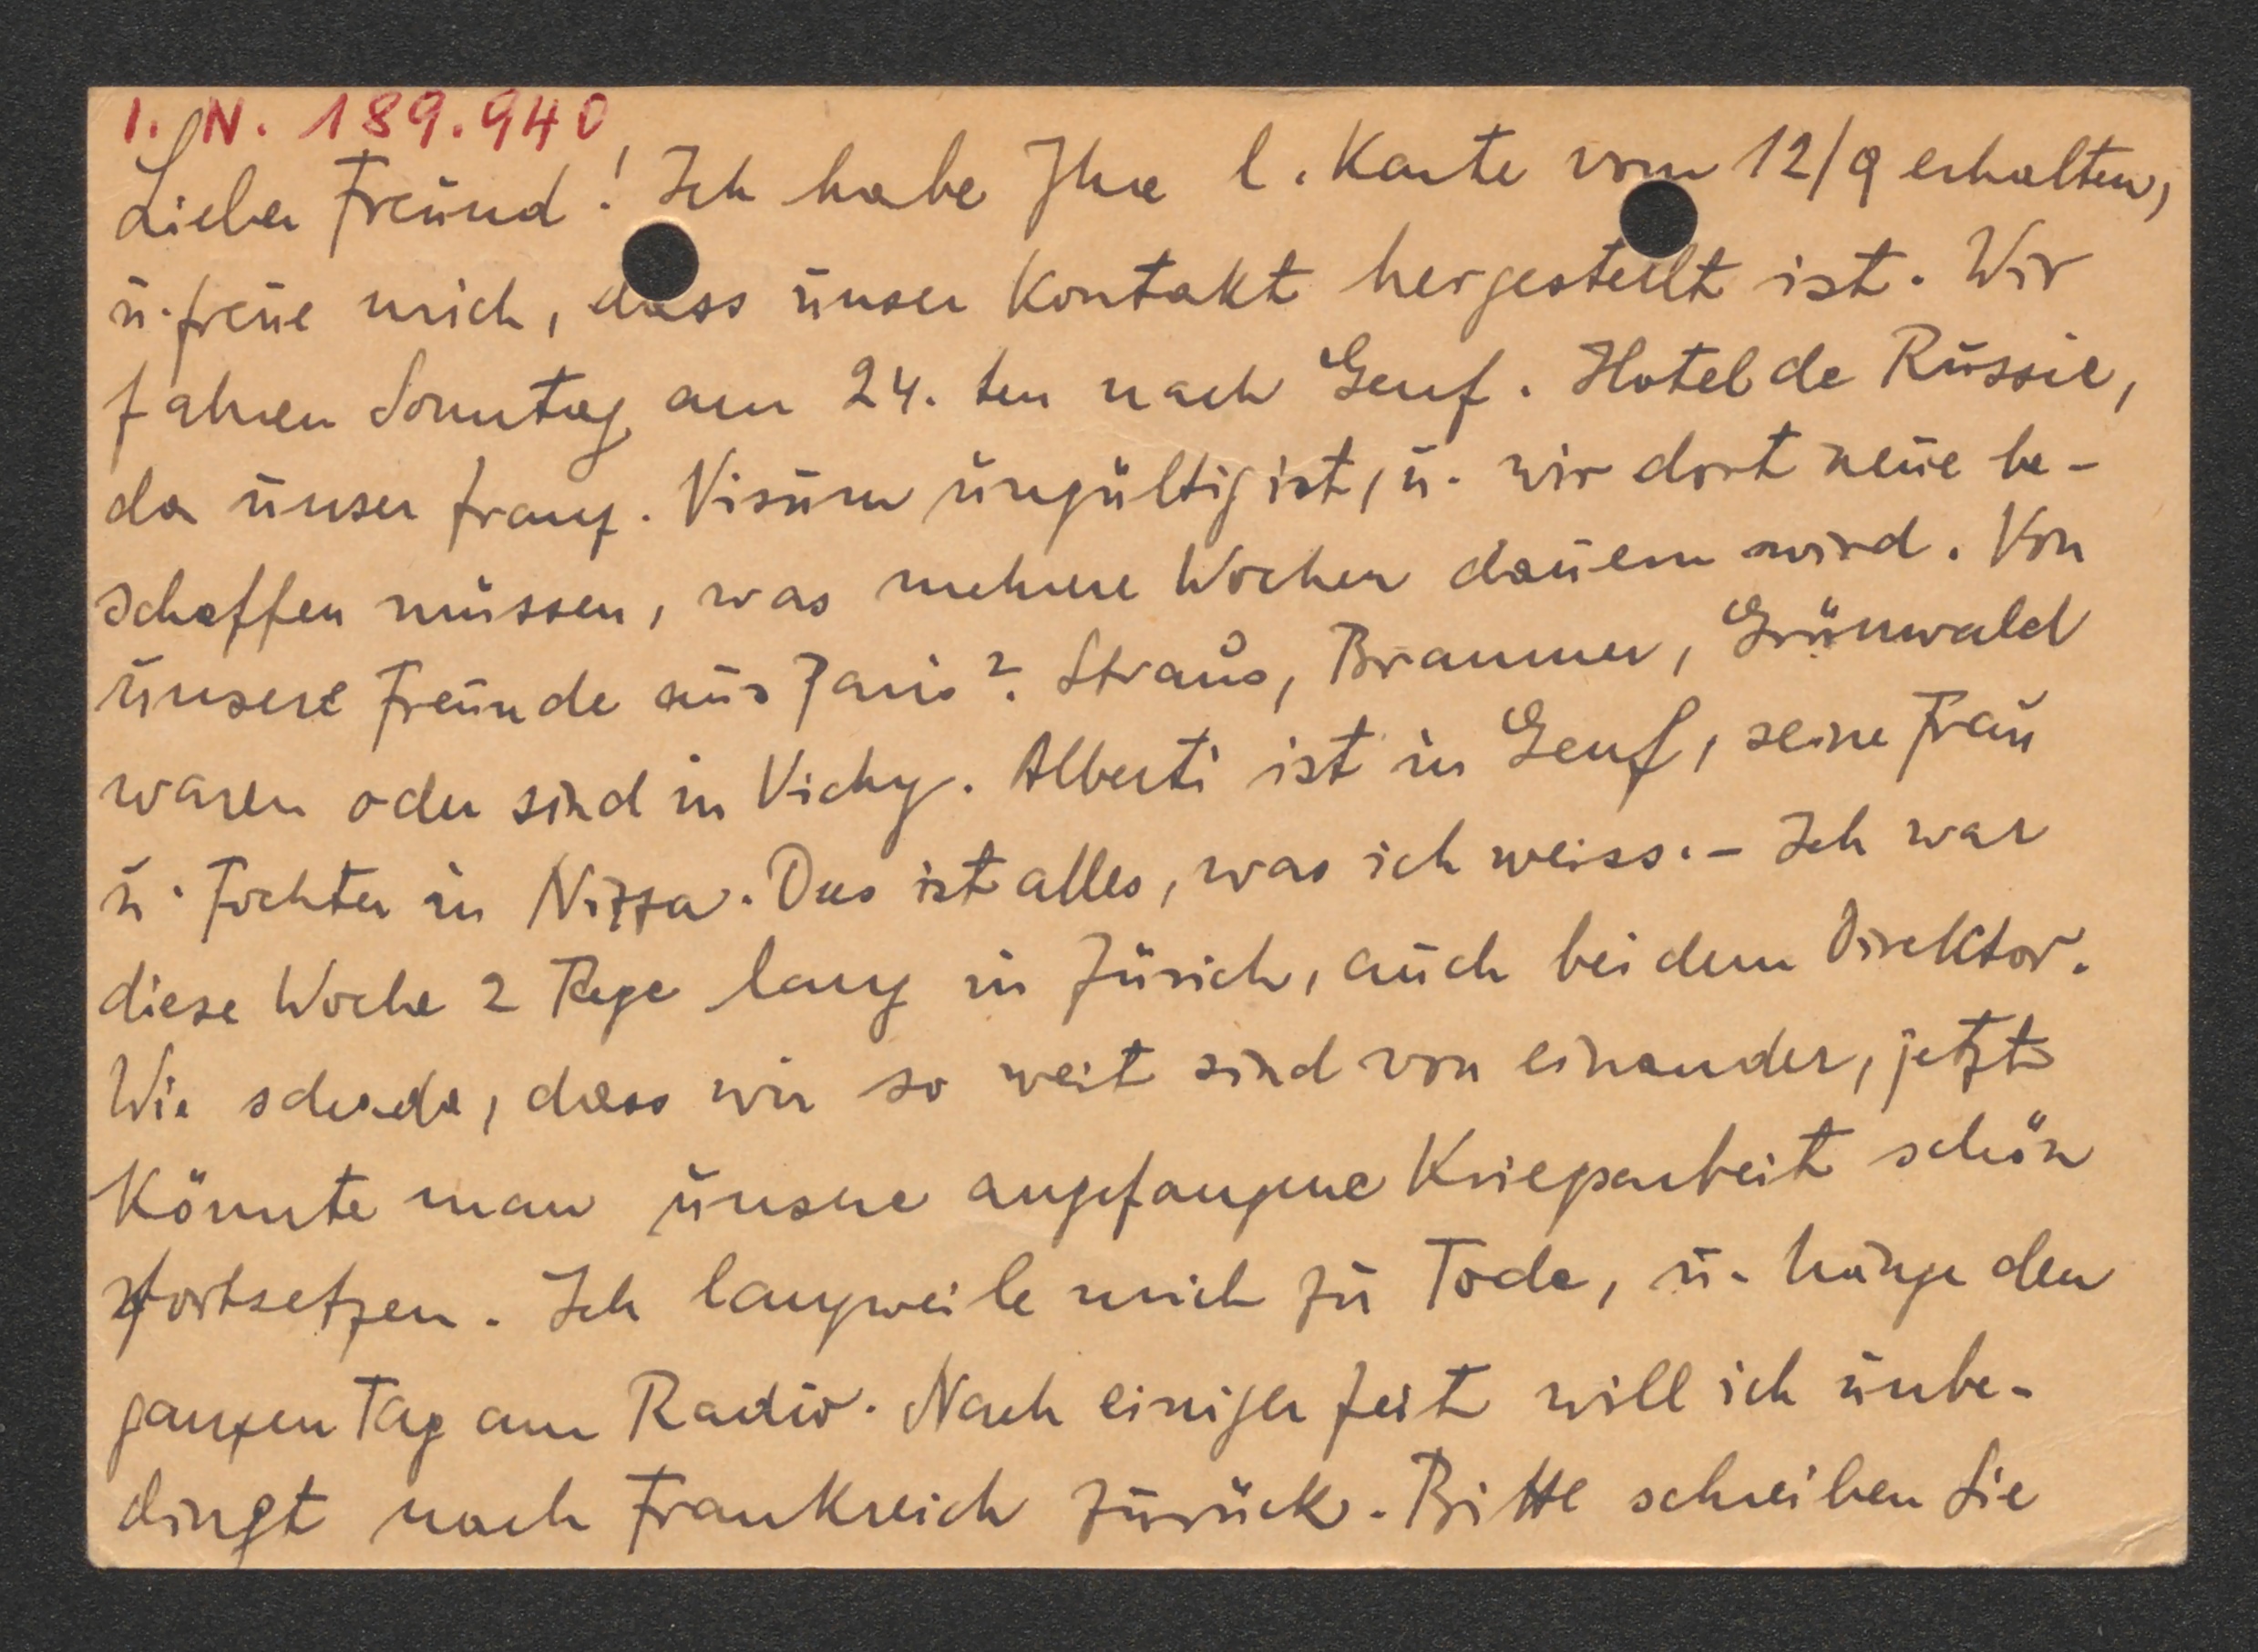 I. N. 189.940
Lieber Freund! Ich habe Ihre l. Karte vom 12/9 erhalten,
u. freue mich, dass unser Kontakt hergestellt ist. Wir
fahren Sonntag am 24. ten nach Genf. Hotel de Russie,
da unser franz. Visum ungültig ist, u. wir dort neue be-
schaffen müssen, was mehrere Wochen dauern wird. Von
unsere Freunde aus Paris? Straus, Brammer, Grünwald
waren oder sind in Vichy. Alberti ist in Genf, seine Frau
u. Tochter in Nizza. Das ist alles, was ich weiss. - Ich war
diese Woche 2 Tage lang in Zürich, auch bei dem Direktor.
Wie schade, dass wir so weit sind von einander, jetzt
könnte man unsere angefangene Kriegsarbeit schön
fortsetzen. Ich langweile mich zu Tode, u. hänge den
ganzen Tag am Radio. Nach einiger Zeit will ich unbe-
dingt nach Frankreich zurück. Bitte schreiben Sie